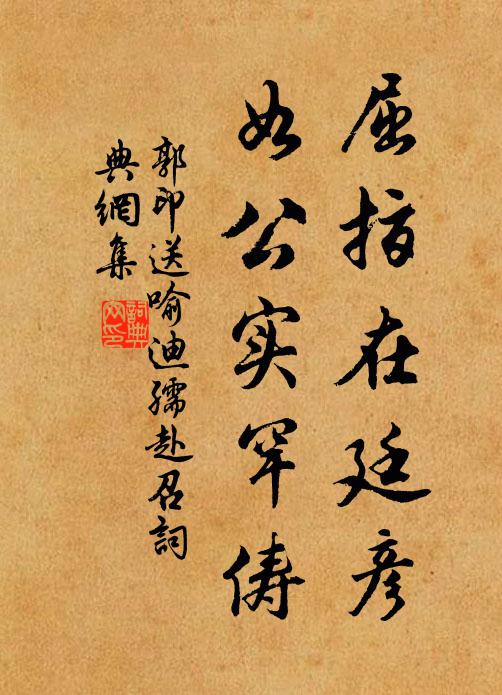 屈指在廷彦
如公实罕俦
郭印送喻迪孺赴召詞
典網集
詞典
网印